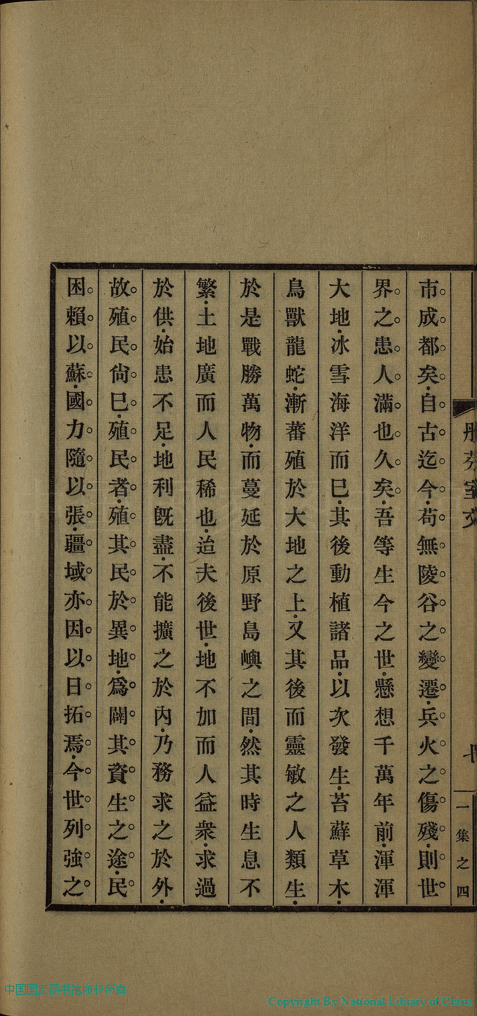 市成都矣.自古迄今.苟無陵谷之變遷.兵火之傷殘.則世
界之患人滿也久矣.吾等生今之世.懸想千萬年前.渾渾
大地.冰雪海洋而已.其後動植諸品.以次發生.苔蘇草木.
鳥獸龍蛇.漸蕃殖於大地之上.又其後而靈敏之人類生.
於是戰勝萬物.而蔓延於原野島嶼之間.然其時生息不
繁.土地廣而人民稀也.迨夫後世.地不加而人益衆.求過
於供.始患不足.地利旣盡.不能擴之於內.乃務求之於外.
故殖民尙已.殖民者.殖其民於異地.爲闢其資生之途.民
困賴以蘇.國力隨以張.疆域亦因以日拓焉.今世列強之
一集之四
Copyright By National Library of China